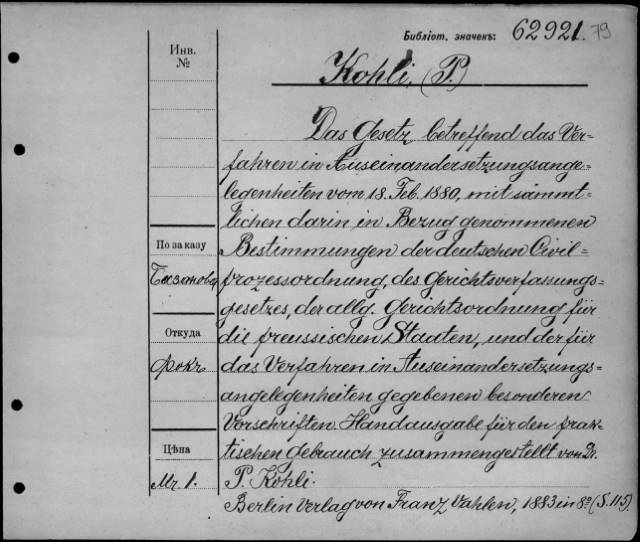 Библіот. значекъ: 62921. 79
Инв.
№
Kohli, (P.)
Das Gesetz, betreffend das Ver-
fahren in Auseinandersetzungsange-
legenheiten vom 18. Feb. 1880, mit sämmt-
lichen darin in Bezug genommenen
По заказу
Bestimmungen der deutschen Civil-
prozessordnung, des Gerichtsverfassungs-
gesetzes, der allg. Gerichtsordnung für
Откуда
die preussischen Staaten, und der für
das Verfahren in Auseinandersetzungs-
angelegenheiten gegebenen besonderen
Vorschriften. Handausgabe für den prak-
Цѣна
tischen Gebrauch zusammengestellt von Dr.
Mr. 1.
P. Kohli.
Berlin Verlag von Franz Vahlen, 1883 in 8º (S. 115).